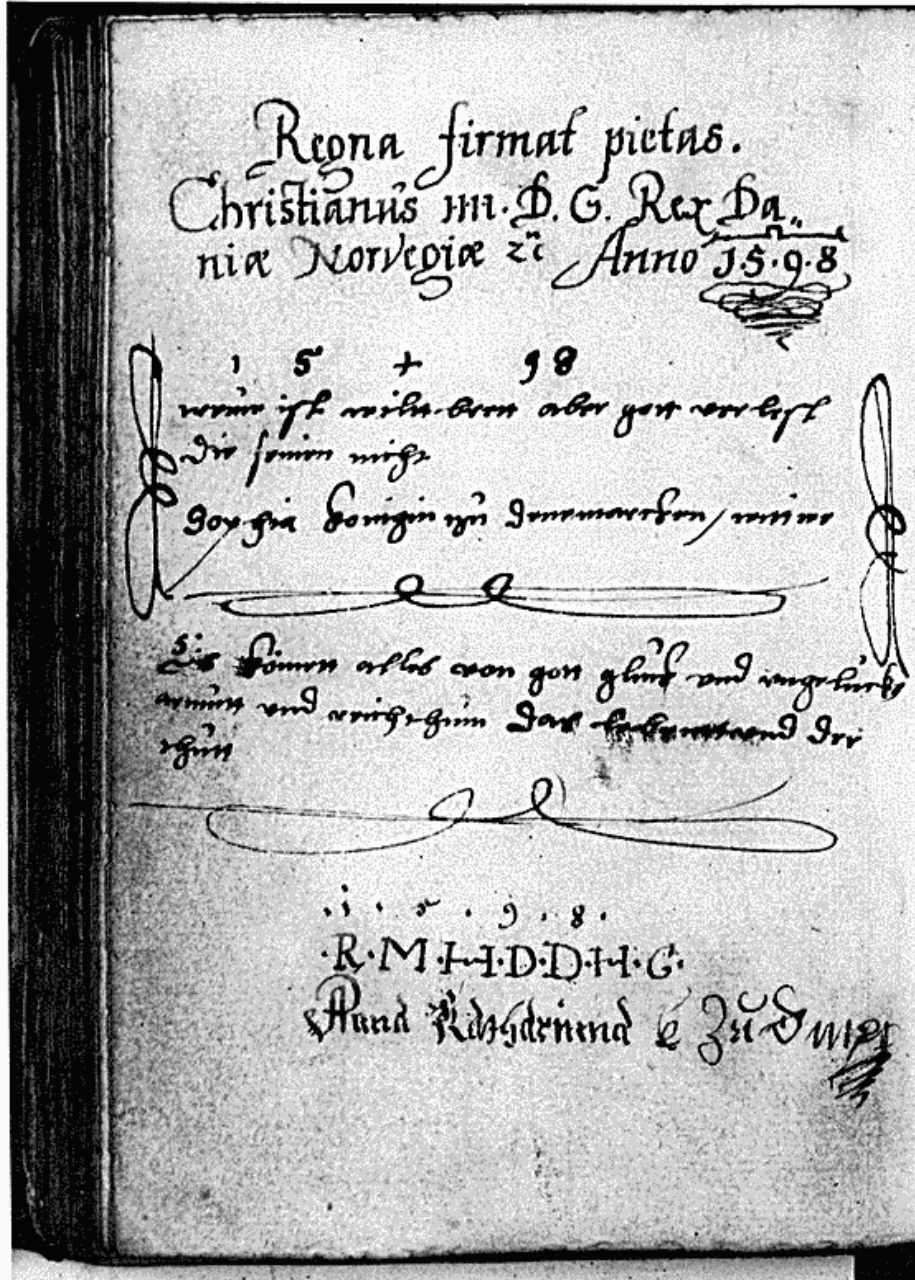 Regna firmat pietas.
Christianus IIII. D. G. Rex Da„
niæ Norvegiæ zc Anno 1598
1 5 + 98
ist aber gott verlest
die seinen nicht
Sophia Königin zu Denemarcken / witwe
Es kömett alles von gott glück und ungelücke
armutt und reichthum das der
thutt
.1.5.9.8.
.R.M.H.D.D.H.G.
Anna Katharina